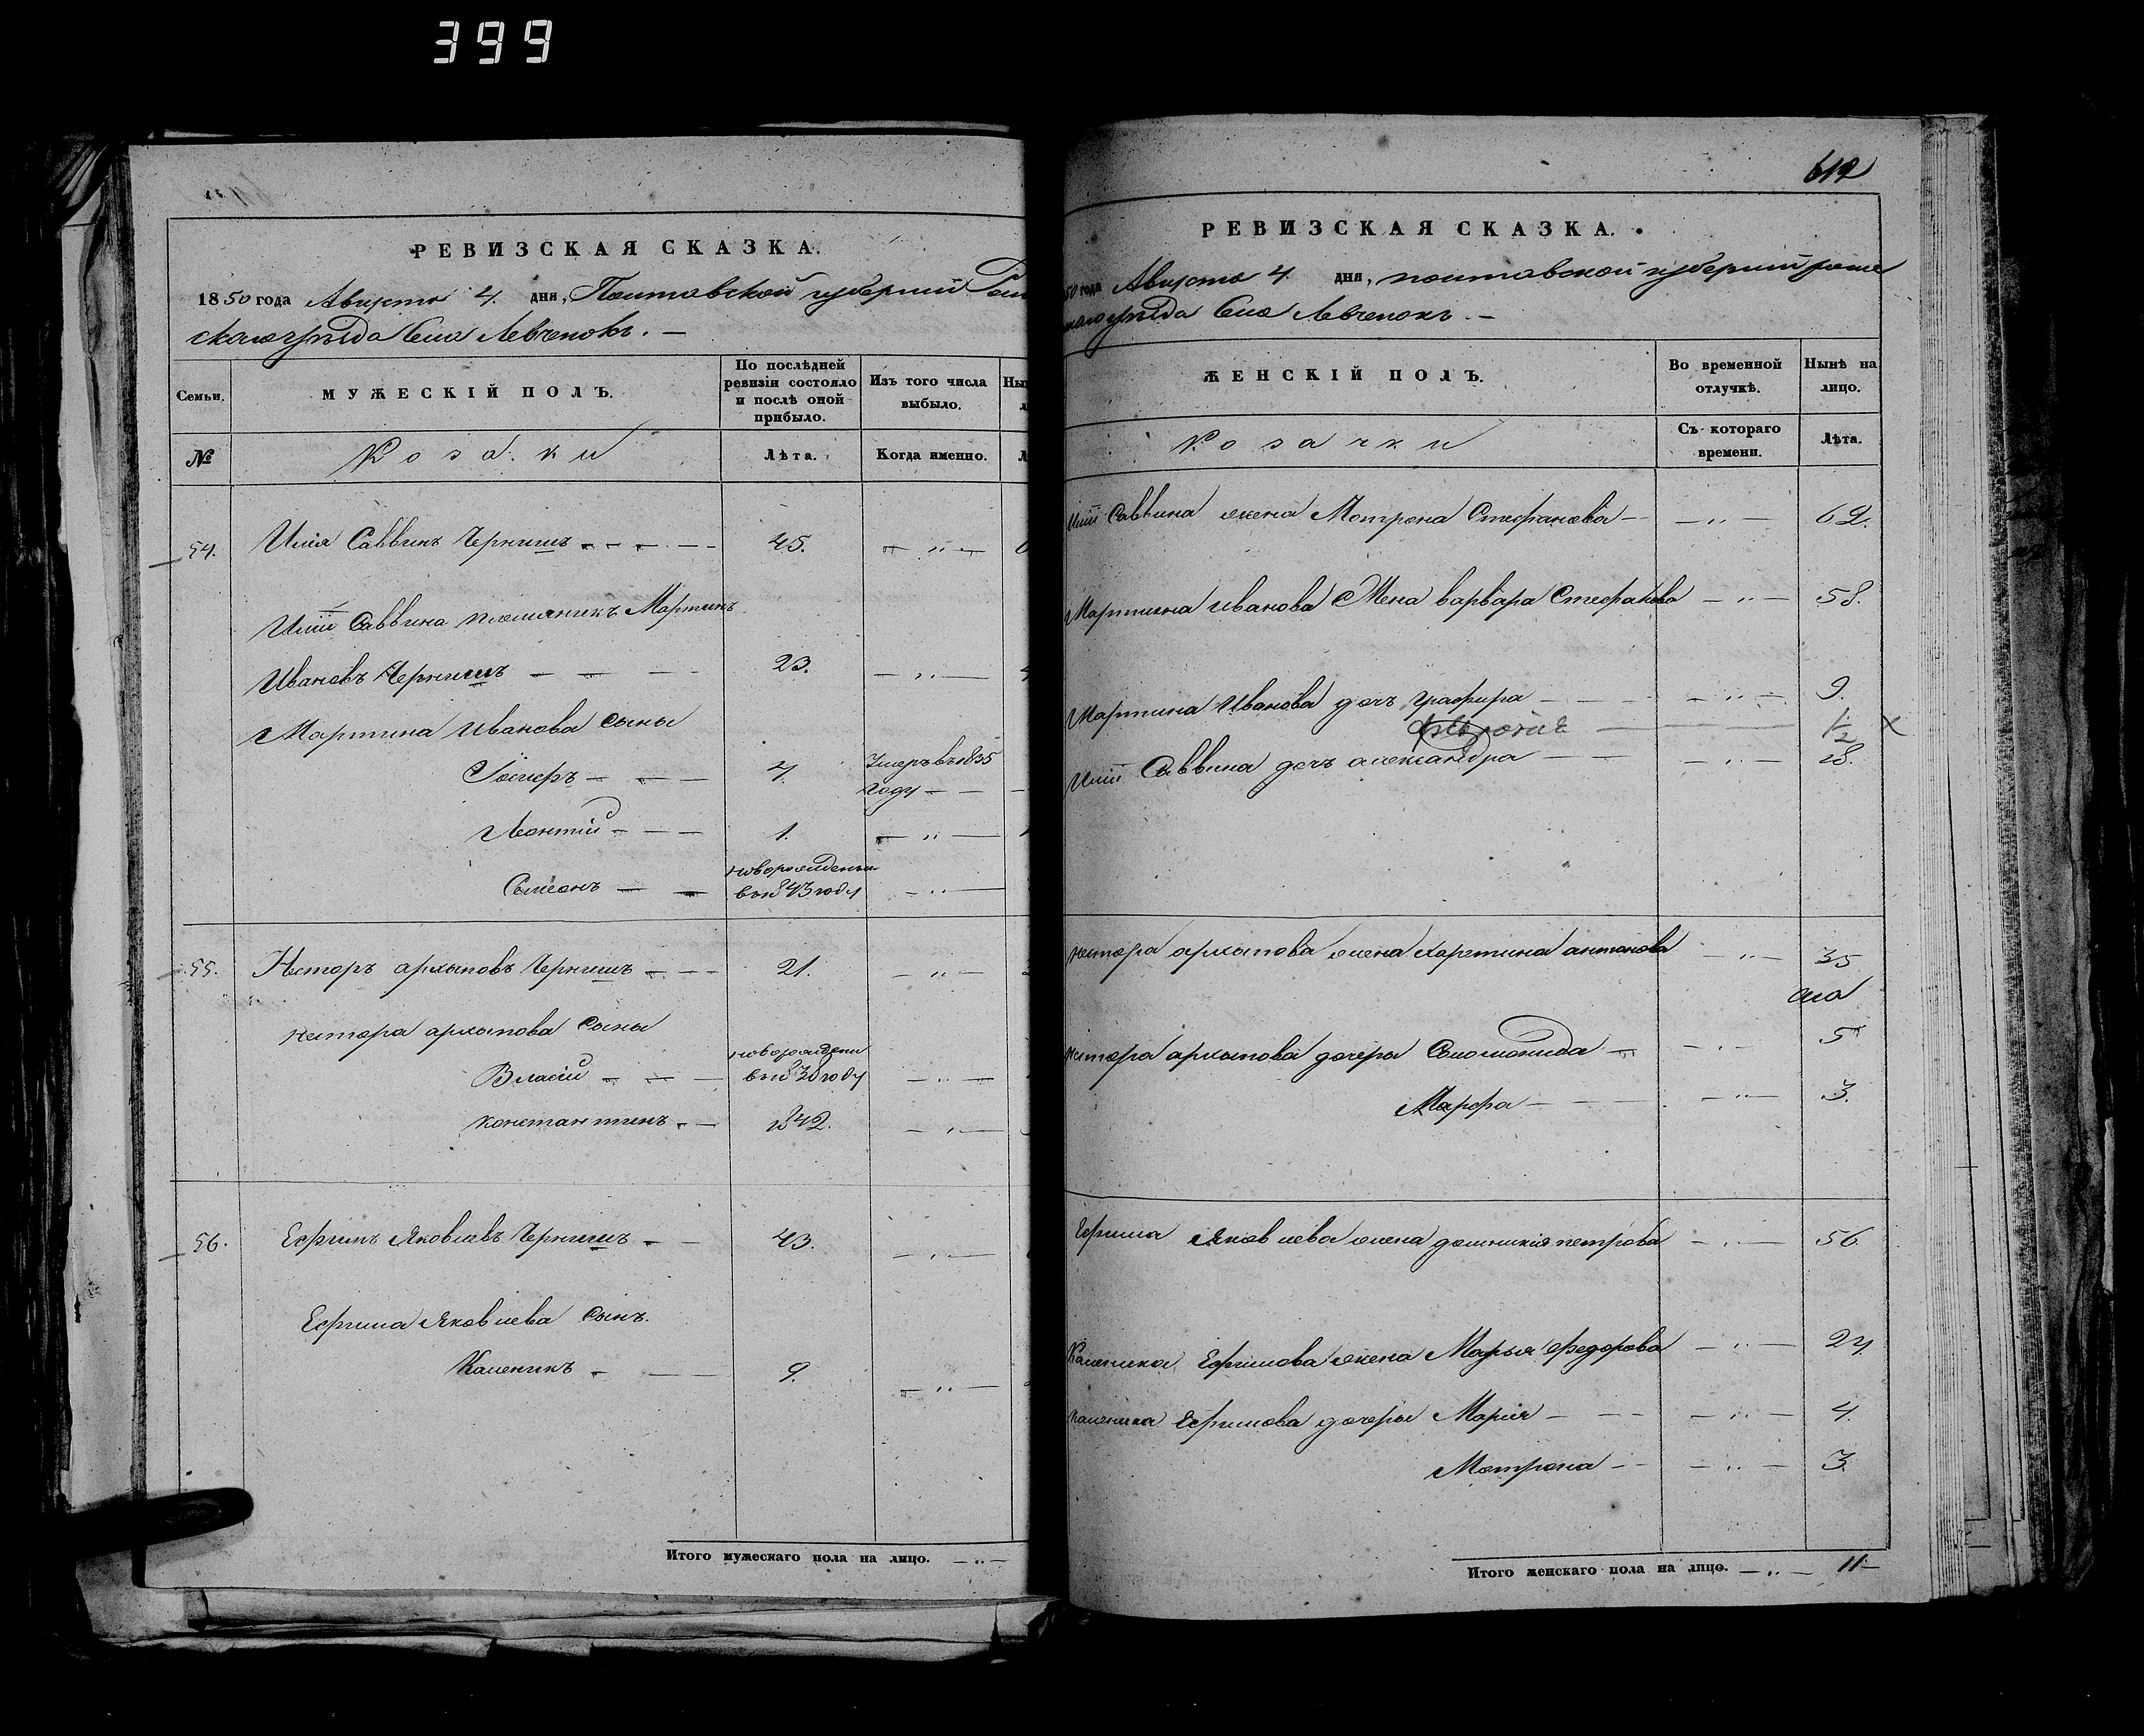 399
РЕВИЗСКАЯ СКАЗКА.
1850 года Августа 4. дня, Полтавской губерніи Ром
скаго уѣзда Села Левченокъ. —
Семьи.
МУЖЕСКІЙ ПОЛЪ.
По послѣдней ревизіи состояло и послѣ оной прибыло.
Изъ того числа выбыло.
№
Козаки
Лѣта.
Когда именно.
54. Илія Саввинъ Чернишъ 45. — " —
Иліи Саввина племяникъ Мартинъ
Ивановъ Чернишъ 23. — " —
Мартина Иванова сыны
4. Умеръ въ 1835
году
Леонтій 1. — " —
новорожденъ
Симеонъ в 1843 году — " —
55. Несторъ архыповъ Чернишъ 21. — " —
нестора архыпова сыны
новорожден
Власій в 1838 году — " —
константинъ 1842. — " —
56. Ефимъ Яковлевъ Чернишъ 43. — " —
Ефима Яковлева сынъ.
Каленикъ 9. — " —
Итого мужескаго пола на лицо. — " —
612
РЕВИЗСКАЯ СКАЗКА.
50 года Августа 4. дня, полтавской губерніи роме
скаго уѣзда Села Левченокъ. —
ЖЕНСКІЙ ПОЛЪ.
Во временной отлучкѣ.
Нынѣ на лицо.
Козачки
Съ котораго времени.
Лѣта.
Иліи Саввина жена Мотрона Стефанова — " — 62.
Мартина Иванова Жена варвара Стефанова — " — 58.
Мартина Иванова дочь — " — 9.
1/2 х
Иліи Саввина дочь александра — " — 28.
нестора архыпова жена харитина антонова — " — 35
нестора архыпова дочери Соломонида — " — 5
Марфа — " — 3.
Ефима Яковлева жена домникія петрова — " — 56.
Каленика Ефимова жена Марья Федорова — " — 24.
каленика Ефимова дочери Марія — " — 4.
Мотрона — " — 3.
Итого женскаго пола на лицо. — " — 11 —